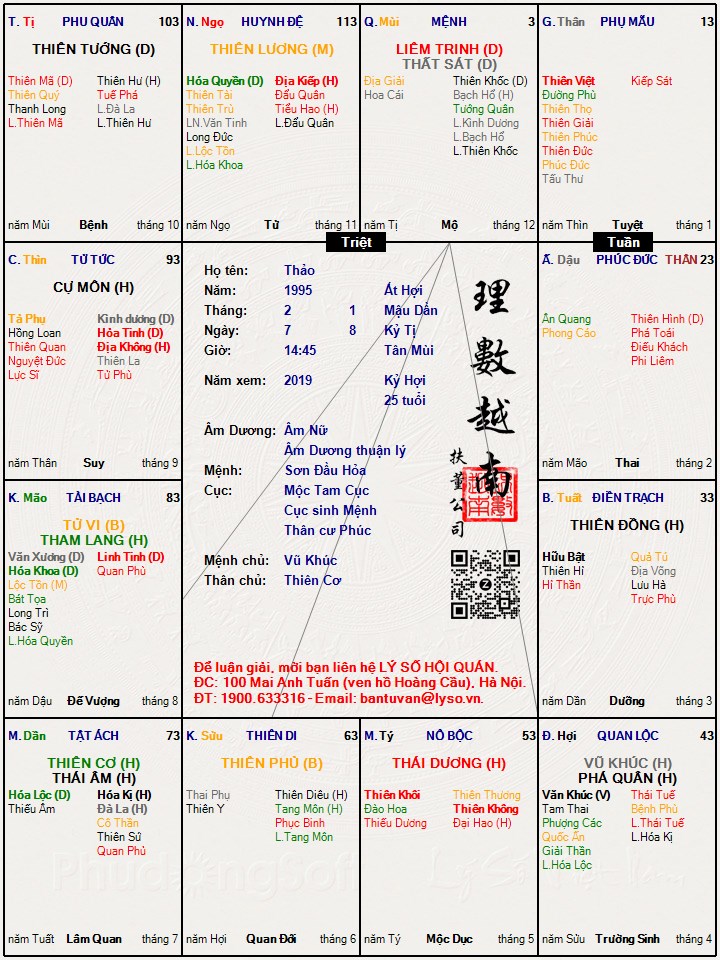 T. Tị PHU QUÂN 103
THIÊN TƯỚNG (D)
Thiên Mã (D) Thiên Hư (H)
Thiên Quý Tuế Phá
Thanh Long L.Đà La
L.Thiên Mã L.Thiên Hư
năm Mùi Bệnh tháng 10
N. Ngọ HUYNH ĐỆ 113
THIÊN LƯƠNG (M)
Hóa Quyền (D) Địa Kiếp (H)
Thiên Tài Đẩu Quân
Thiên Trù Tiểu Hao (H)
LN.Văn Tinh L.Đẩu Quân
Long Đức
L.Lộc Tồn
L.Hóa Khoa
năm Ngọ Tử tháng 11
Q. Mùi MỆNH 3
LIÊM TRINH (D)
THẤT SÁT (D)
Địa Giải Thiên Khốc (D)
Hoa Cái Bạch Hổ (H)
Tướng Quân
L.Kình Dương
L.Bạch Hổ
L.Thiên Khốc
năm Tị Mộ tháng 12
G. Thân PHỤ MẪU 13
Thiên Việt Kiếp Sát
Đường Phù
Thiên Thọ
Thiên Giải
Thiên Phúc
Thiên Đức
Phúc Đức
Tấu Thư
năm Thìn Tuyệt tháng 1
Triệt
Tuần
C. Thìn TỬ TỨC 93
CỰ MÔN (H)
Tả Phụ Kình dương (D)
Hồng Loan Hỏa Tinh (D)
Thiên Quan Địa Không (H)
Nguyệt Đức Thiên La
Lực Sĩ Tử Phù
năm Thân Suy tháng 9
Họ tên: Thảo
Năm: 1995 Ất Hợi
Tháng: 2 1 Mậu Dần
Ngày: 7 8 Kỷ Tị
Giờ: 14:45 Tân Mùi
Năm xem: 2019 Kỷ Hợi
25 tuổi
Âm Dương: Âm Nữ
Âm Dương thuận lý
Mệnh: Sơn Đầu Hỏa
Cục: Mộc Tam Cục
Cục sinh Mệnh
Thân cư Phúc
Mệnh chủ: Vũ Khúc
Thân chủ: Thiên Cơ
理數越南
扶董公司
Z
Để luận giải, mời bạn liên hệ LÝ SỐ HỘI QUÁN.
ĐC: 100 Mai Anh Tuấn (ven hồ Hoàng Cầu), Hà Nội.
ĐT: 1900.633316 - Email: bantuvan@lyso.vn.
Ấ. Dậu PHÚC ĐỨC THÂN 23
Ân Quang Thiên Hình (D)
Phong Cáo Phá Toái
Điếu Khách
Phi Liêm
năm Mão Thai tháng 2
K. Mão TÀI BẠCH 83
TỬ VI (B)
THAM LANG (H)
Văn Xương (D) Linh Tinh (D)
Hóa Khoa (D) Quan Phù
Lộc Tồn (M)
Bát Tọa
Long Trì
Bác Sỹ
L.Hóa Quyền
năm Dậu Đế Vượng tháng 8
B. Tuất ĐIỀN TRẠCH 33
THIÊN ĐỒNG (H)
Hữu Bật Quả Tú
Thiên Hỉ Địa Võng
Hỉ Thần Lưu Hà
Trực Phù
năm Dần Dưỡng tháng 3
M. Dần TẬT ÁCH 73
THIÊN CƠ (H)
THÁI ÂM (H)
Hóa Lộc (D) Hóa Kị (H)
Thiếu Âm Đà La (H)
Cô Thần
Thiên Sứ
Quan Phủ
năm Tuất Lâm Quan tháng 7
K. Sửu THIÊN DI 63
THIÊN PHỦ (B)
Thai Phụ Thiên Diêu (H)
Thiên Y Tang Môn (H)
Phục Binh
L.Tang Môn
năm Hợi Quan Đới tháng 6
M. Tý NÔ BỘC 53
THÁI DƯƠNG (H)
Thiên Khôi Thiên Thương
Đào Hoa Thiên Không
Thiếu Dương Đại Hao (H)
năm Tý Mộc Dục tháng 5
Đ. Hợi QUAN LỘC 43
VŨ KHÚC (H)
PHÁ QUÂN (H)
Văn Khúc (V) Thái Tuế
Tam Thai Bệnh Phù
Phượng Các L.Thái Tuế
Quốc Ấn L.Hóa Kị
Giải Thần
L.Hóa Lộc
năm Sửu Trường Sinh tháng 4